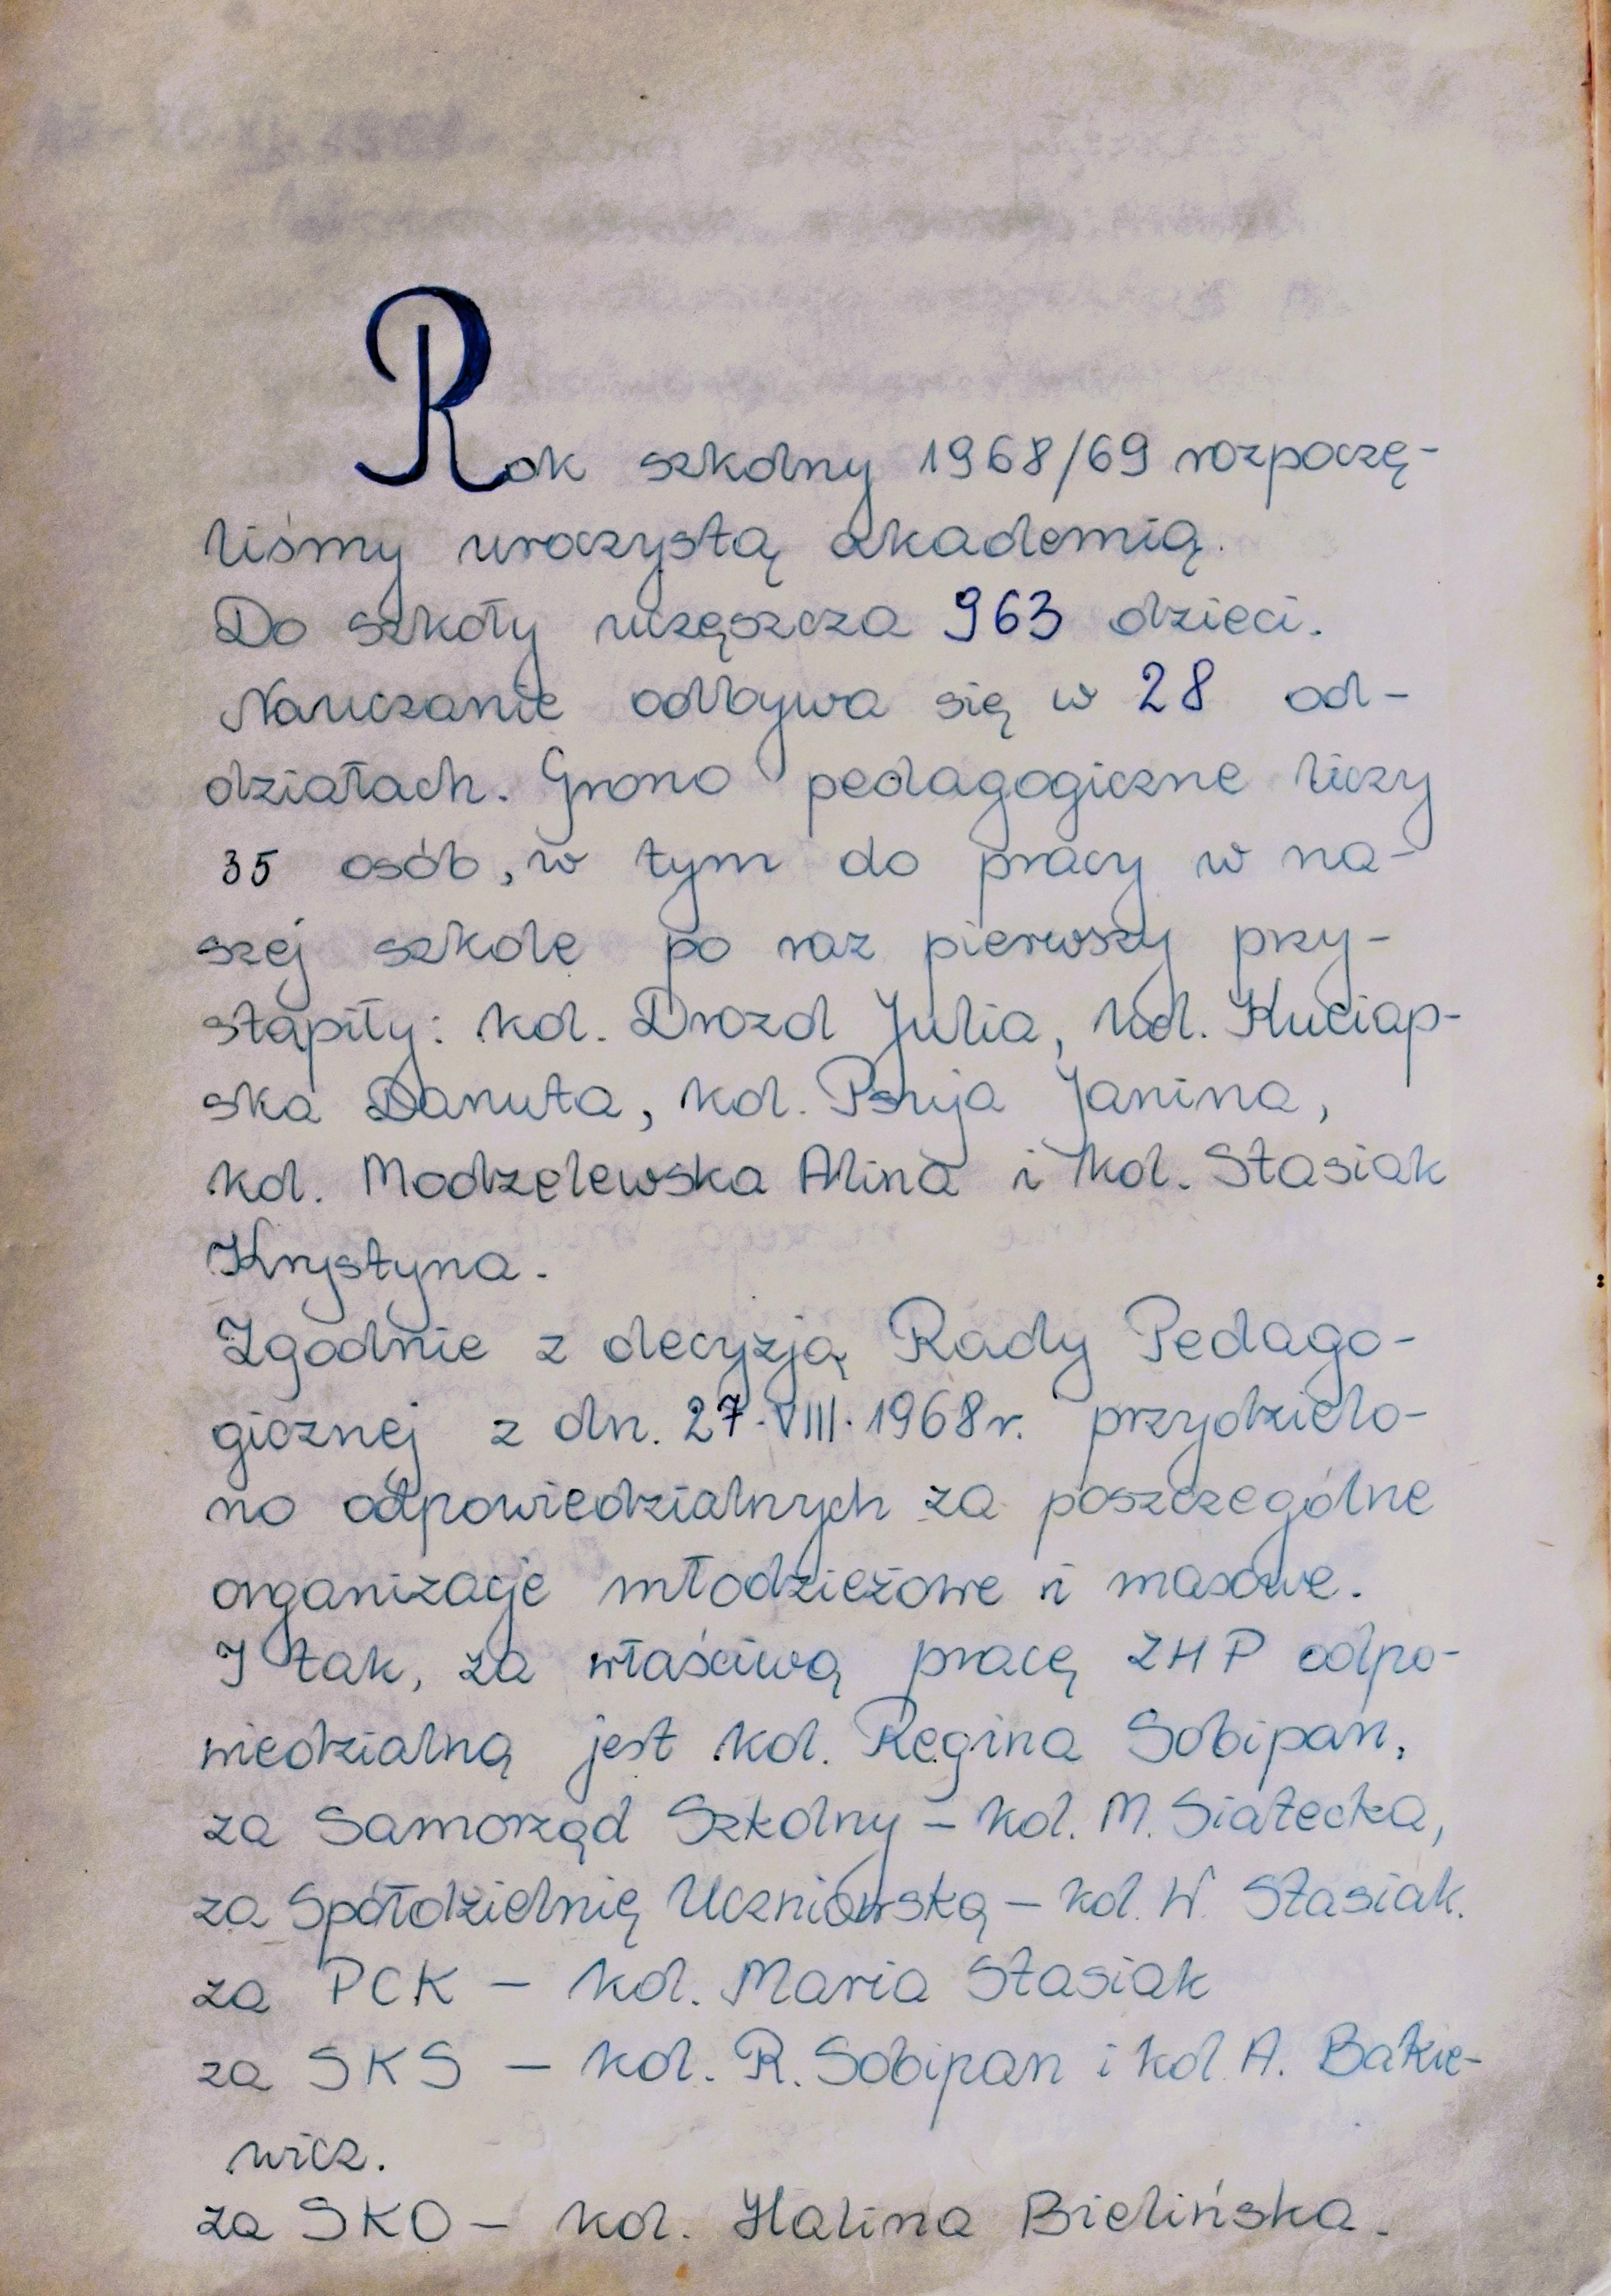 Rok szkolny 1968/69 rozpoczę-
liśmy uroczystą akademią.
Do szkoły uczęszcza 963 dzieci.
Nauczanie odbywa się w 28 od-
działach. Grono pedagogiczne liczy
35 osób, w tym do pracy w na-
szej szkole po raz pierwszy przy-
stąpiły: kol. Drozd Julia, kol. Kuciap-
ska Danuta, kol. Psuja Janina,
kol. Modzelewska Alina i kol. Stasiak
Krystyna.
Zgodnie z decyzją Rady Pedago-
gicznej z dn. 27.VIII.1968r. przydzielo-
no odpowiedzialnych za poszczególne
organizacje młodzieżowe i masowe.
I tak, za właściwą pracę ZHP odpo-
wiedzialną jest kol. Regina Sobipan,
za Samorząd Szkolny – kol. M. Siatecka,
za Spółdzielnię Uczniowską – kol. W. Stasiak.
za PCK – kol. Maria Stasiak
za SKS – kol. R. Sobipan i kol. A. Bakie-
wicz.
za SKO – kol. Halina Bielińska.